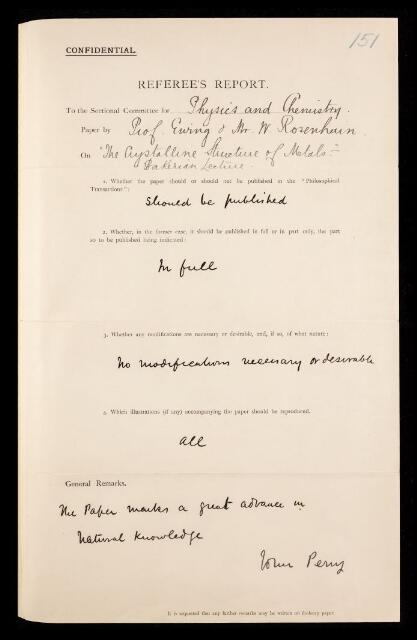 151
CONFIDENTIAL.
REFEREE'S REPORT.
To the Sectional Committee for Physics and Chemistry.
Paper by Prof. Ewing & Mr. W. Rosenhain.
On "The Crystalline Structure of Metals."
Bakerian Lecture.
1. Whether the paper should or should not be published in the "Philosophical
Transactions":
Should be published
2. Whether, in the former case, it should be published in full or in part only, the part
so to be published being indicated:
In full
3. Whether any modifications are necessary or desirable, and, if so, of what nature:
No modifications necessary or desirable
4. Which illustrations (if any) accompanying the paper should be reproduced.
all
General Remarks.
The Paper marks a great advance in
Natural Knowledge
John Perry
It is requested that any further remarks may be written on foolscap paper.